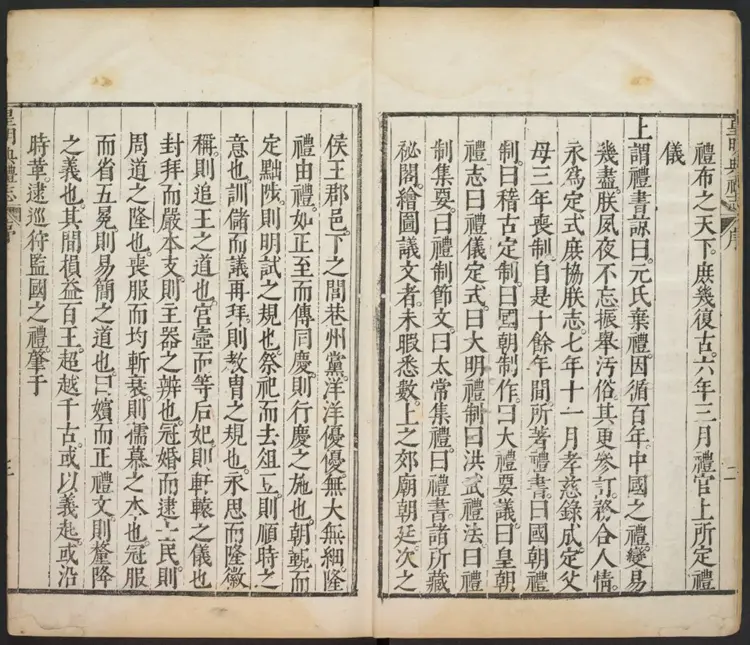 禮布之天下。庶幾復古。六年三月禮官上所定禮
儀
上謂禮書誤曰。元氏棄禮。因循百年。中國之禮變易
幾盡。朕夙夜不忘振舉汚俗。其更參訂。務合人情。
永爲定式。庶協朕志。七年十一月孝慈錄成。定父
母三年喪制。自是十餘年間所著禮書。曰國朝禮
制。曰稽古定制。曰國朝制作。曰大禮要議。曰皇朝
禮志。曰禮儀定式。曰大明禮制。曰洪武禮法。曰禮
制集要。曰禮制節文。曰太常集禮。曰禮書。諸所藏
祕閣。繪圖議文者。未暇悉數。上之郊廟朝廷。次之
侯王郡邑。下之閭巷州黨。洋洋優優。無大無細。隆
禮由禮。如正至而傳同慶。則行慶之施也。朝覲而
定黜陟。則明試之規也。祭祀而去俎豆。則順時之
意也。訓儲而議再拜。則教冑之規也。永思而隆徽
稱。則追王之道也。宮壼而等后妃。則軒轅之儀也
封拜而嚴本支。則王器之辨也。冠婚而逮士民。則
周道之隆也。喪服而均斬衰。則孺慕之本也。冠服
而省五冕。則易簡之道也。曰嬪而正禮文。則釐降
之義也。其間損益百王。超越千古。或以義起。或沿
時革。逮巡狩監國之禮。肇于
皇明典禮志
序
二
皇明典禮志
序
三